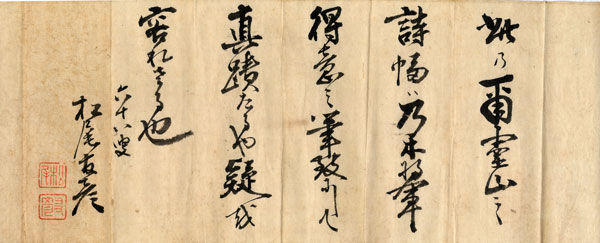 此乃爾霊山之
詩幅ハ乃木将軍
得意之筆致にして
真蹟たるや疑を
容れさる也
六十八叟
松尾